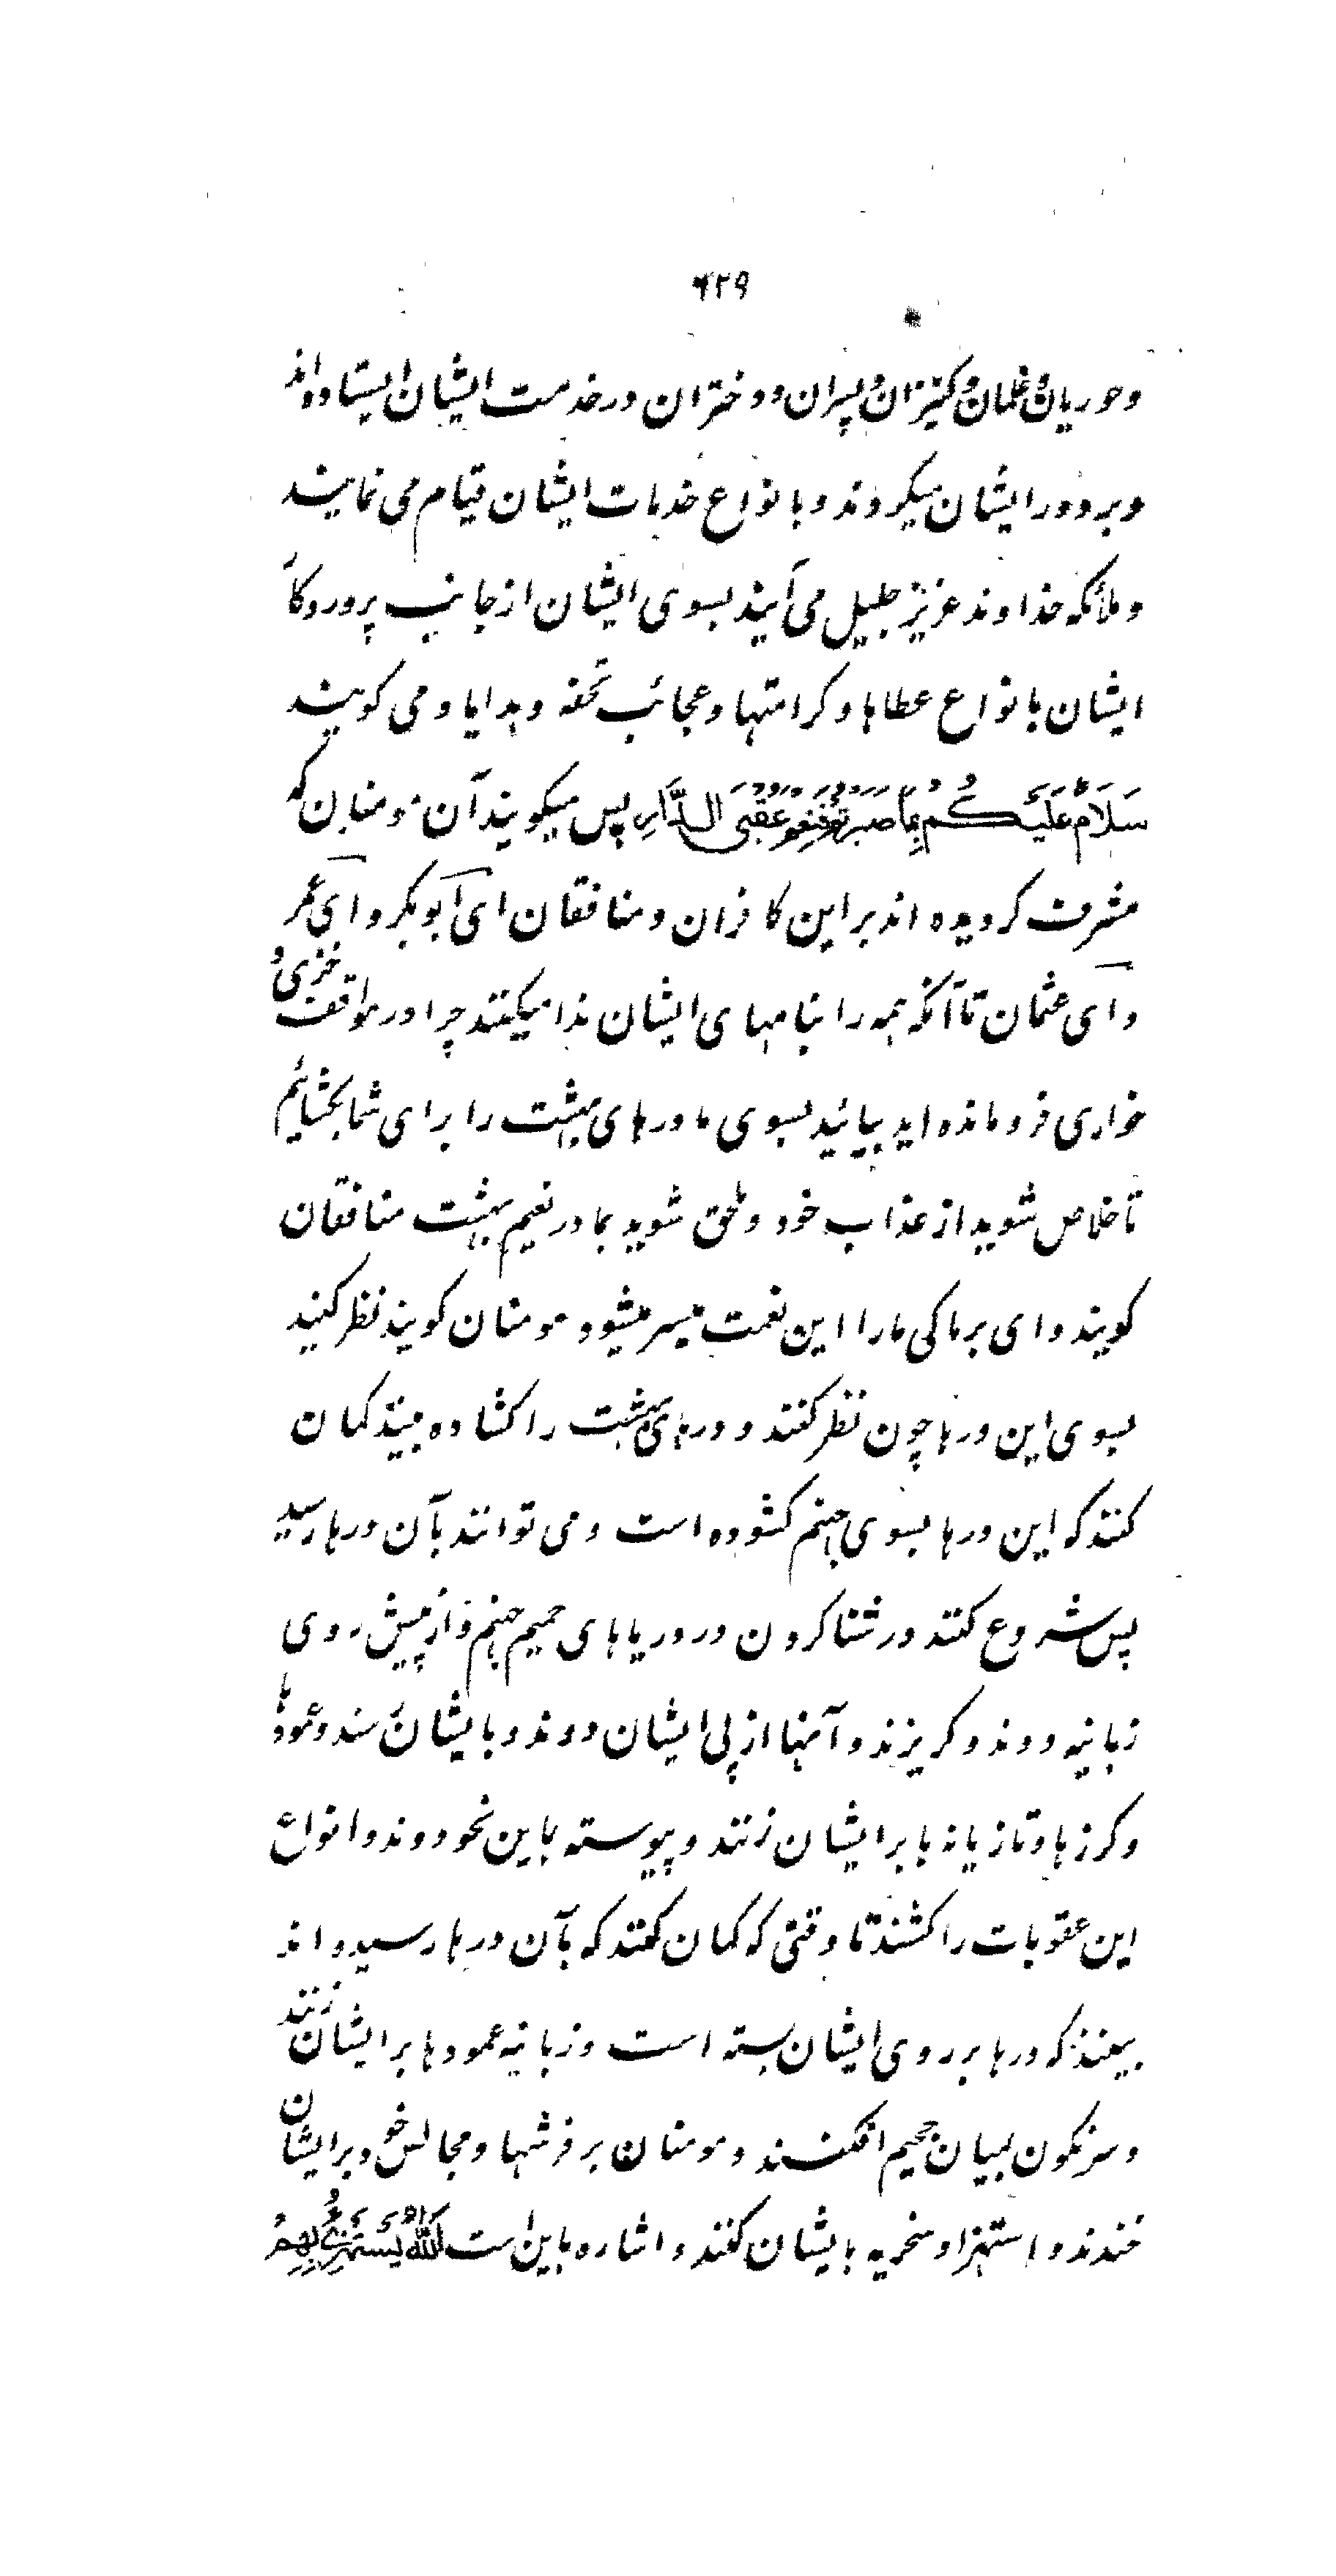 ۶۲۹
و حوریان و غلمان و کنیزان و پسران و دختران در خدمت ایشان ایستاده اند
و بر دور ایشان میکردند و بانواع خدمات ایشان قیام می نمایند
و ملائکه خداوند عزیز جلیل می آیند بسوی ایشان از جانب پروردکار
ایشان بانواع عطاها و کرامتها و عجائب تحفه و هدایا و می کویند
سَلَامٌ عَلَيْكُمْ بِمَا صَبَرْتُمْ فَنِعْمَ عُقْبَى الدَّارِ پس میکویند آن مومنان که
مشرف کردیده اند بر این کافران و منافقان ای ابوبکر و ای عمر
و ای عثمان تا آنکه همه را بنامهای ایشان ندا میکنند چرا در مواقف خزی و
خواری فرو مانده اید بیائید بسوی ما درهای بهشت را برای شما بکشائیم
تا خلاص شوید از عذاب خود و ملحق شوید بما در نعیم بهشت منافقان
کویند وای بر ما کی ما را این نعمت میسر میشود مومنان کویند نظر کنید
بسوی این درها چون نظر کنند و درهای بهشت را کشاده بینند کمان
کنند که این درها بسوی جهنم کشوده است و می توانند بآن درها رسید
پس شروع کنند در شنا کردن در دریاهای حمیم جهنم و از پیش روی
زبانیه دوند و کریزند و آنها از پی ایشان دوند و بایشان رسند و عمودها
و کرزها و تازیانه ها بر ایشان زنند و پیوسته باین نحو دوند و انواع
این عقوبات را کشند تا وقتی که کمان کنند که بآن درها رسیده اند
بینند که درها بر روی ایشان بسته است و زبانیه عمودها بر ایشان زنند
و سرنکون بمیان جحیم افکنند و مومنان بر فرشها و مجالس خود بر ایشان
خندند و استهزا و سخریه بایشان کنند و اشاره باین است اللَّهُ يَسْتَهْزِئُ بِهِمْ